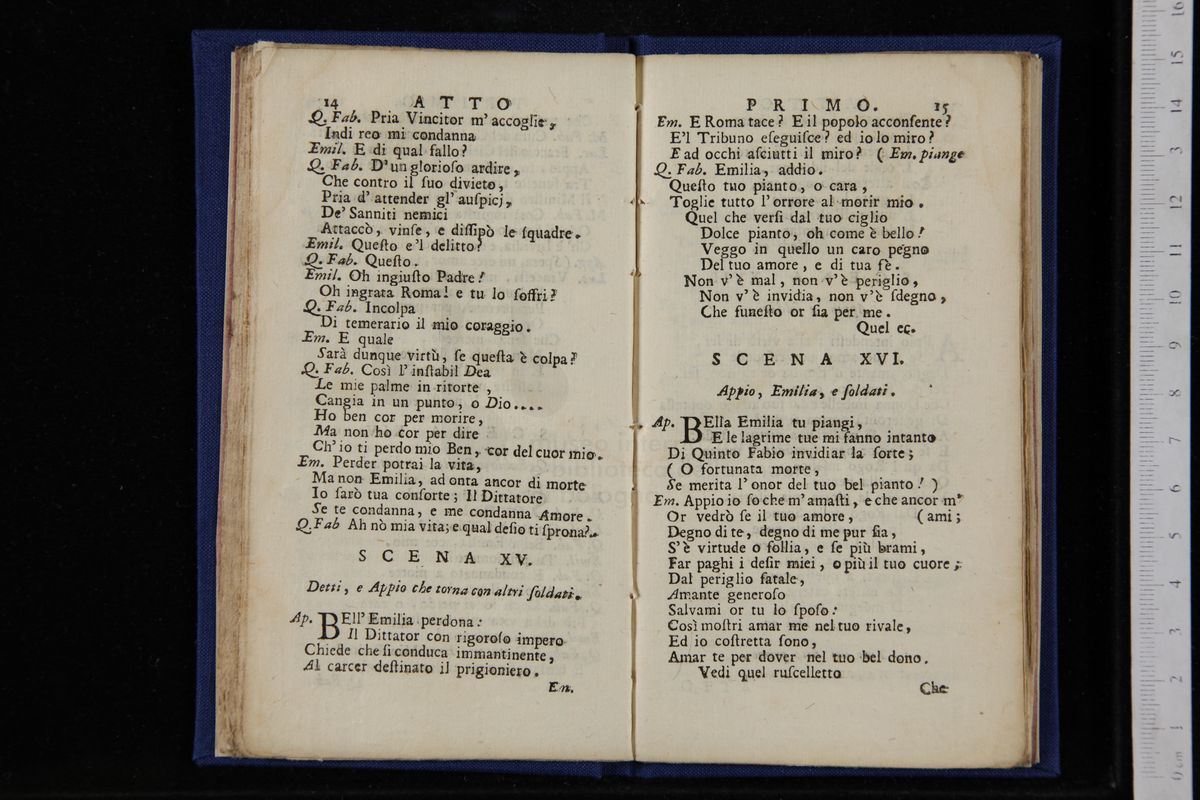 14 ATTO
Q. Fab. Pria Vincitor m' accoglie,
Indi reo mi condanna
Emil. E di qual fallo?
Q. Fab. D' un glorioſo ardire,
Che contro il ſuo divieto,
Pria d' attender gl' auſpicj,
De' Sanniti nemici
Attaccò, vinſe, e diſſipò le ſquadre.
Emil. Queſto e 'l delitto?
Q. Fab. Queſto.
Emil. Oh ingiuſto Padre!
Oh ingrata Roma! e tu lo ſoffri?
Q. Fab. Incolpa
Di temerario il mio coraggio.
Em. E quale
Sarà dunque virtù, ſe queſta è colpa?
Q. Fab. Così l' inſtabil Dea
Le mie palme in ritorte,
Cangia in un punto, o Dio....
Ho ben cor per morire,
Ma non ho cor per dire
Ch' io ti perdo mio Ben, cor del cuor mio.
Em. Perder potrai la vita,
Ma non Emilia, ad onta ancor di morte
Io ſarò tua conſorte; Il Dittatore
Se te condanna, e me condanna Amore.
Q. Fab Ah nò mia vita; e qual deſio ti ſprona?
SCENA XV.
Detti, e Appio che torna con altri ſoldati.
Ap. BEll' Emilia perdona:
Il Dittator con rigoroſo impero
Chiede che ſi conduca immantinente,
Al carcer deſtinato il prigioniero.
Em.
PRIMO. 15
Em. E Roma tace? E il popolo acconſente?
E'l Tribuno eſeguiſce? ed io lo miro?
E ad occhi aſciutti il miro? ( Em. piange
Q. Fab. Emilia, addio.
Queſto tuo pianto, o cara,
Toglie tutto l' orrore al morir mio.
Quel che verſi dal tuo ciglio
Dolce pianto, oh come è bello!
Veggo in quello un caro pegno
Del tuo amore, e di tua fè.
Non v' è mal, non v' è periglio,
Non v' è invidia, non v' è ſdegno,
Che funeſto or ſia per me.
Quel ec.
SCENA XVI.
Appio, Emilia, e ſoldati.
Ap. BElla Emilia tu piangi,
E le lagrime tue mi fanno intanto
Di Quinto Fabio invidiar la ſorte;
( O fortunata morte,
Se merita l' onor del tuo bel pianto! )
Em. Appio io ſo che m' amaſti, e che ancor m'
Or vedrò ſe il tuo amore, ( ami;
Degno di te, degno di me pur ſia,
S' è virtude o follia, e ſe più brami,
Far paghi i deſir miei, o più il tuo cuore;
Dal periglio fatale,
Amante generoſo
Salvami or tu lo ſpoſo:
Così moſtri amar me nel tuo rivale,
Ed io coſtretta ſono,
Amar te per dover nel tuo bel dono.
Vedi quel ruſcelletto
Che
0 cm 1 2 3 4 5 6 7 8 9 10 11 12 13 14 15 16